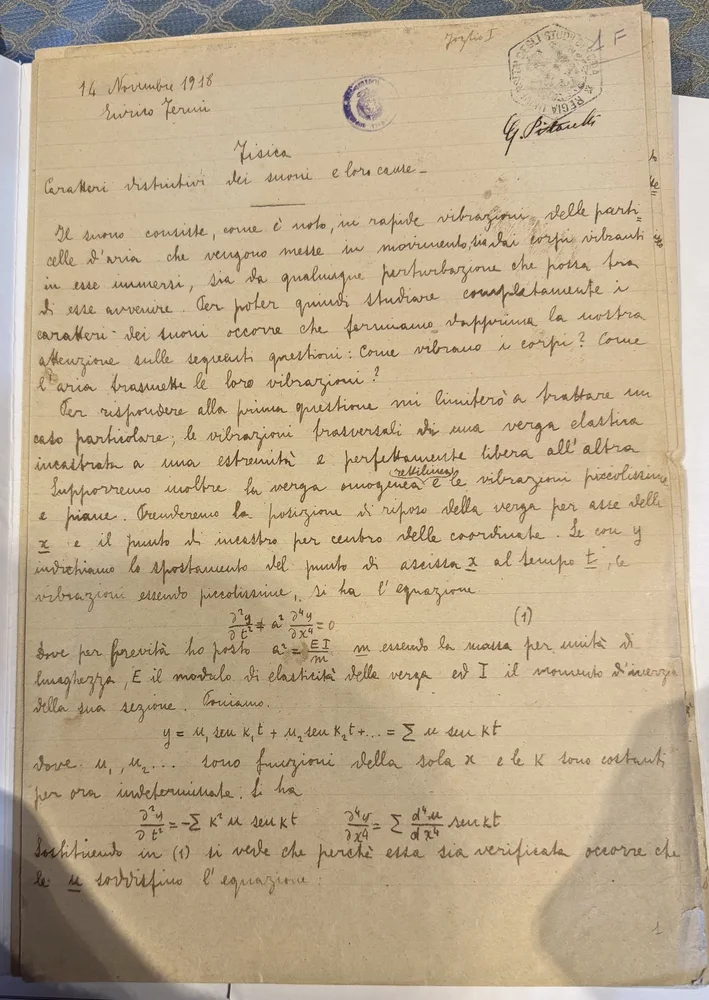 Foglio I
1 F
REGIA UNIVERSITÀ DEGLI STUDI DI PISA
14 Novembre 1918
Enrico Fermi
G. Pitarelli
Fisica
Caratteri distintivi dei suoni e loro cause –
Il suono consiste, come è noto, in rapide vibrazioni delle parti=
celle d'aria che vengono messe in movimento, sia dai corpi vibranti
in esse immersi, sia da qualunque perturbazione che possa tra
di esse avvenire. Per poter quindi studiare completamente i
caratteri dei suoni occorre che fermiamo dapprima la nostra
attenzione sulle seguenti questioni: Come vibrano i corpi? Come
l'aria trasmette le loro vibrazioni?
Per rispondere alla prima questione mi limiterò a trattare un
caso particolare; le vibrazioni trasversali di una verga elastica
incastrata a una estremità e perfettamente libera all'altra
Supporremo inoltre la verga omogenea rettilinea e le vibrazioni piccolissime
e piane. Prenderemo la posizione di riposo della verga per asse delle
x e il punto di incastro per centro delle coordinate. Se con y
indichiamo lo spostamento del punto di ascissa x al tempo t, le
vibrazioni essendo piccolissime, si ha l'equazione
∂²y/∂t² + a² ∂⁴y/∂x⁴ = 0 (1)
Dove per brevità ho posto a² = EI/m m essendo la massa per unità di
lunghezza, E il modulo di elasticità della verga ed I il momento d'inerzia
della sua sezione. Poniamo.
y = u₁ sen k₁t + u₂ sen k₂t + ... = ∑ u sen kt
dove u₁, u₂ ... sono funzioni della sola x e le K sono costanti
per ora indeterminate. Si ha
∂²y/∂t² = -∑ k² u sen kt ∂⁴y/∂x⁴ = ∑ d⁴u/dx⁴ sen kt
Sostituendo in (1) si vede che perchè essa sia verificata occorre che
le u soddisfino l'equazione:
1